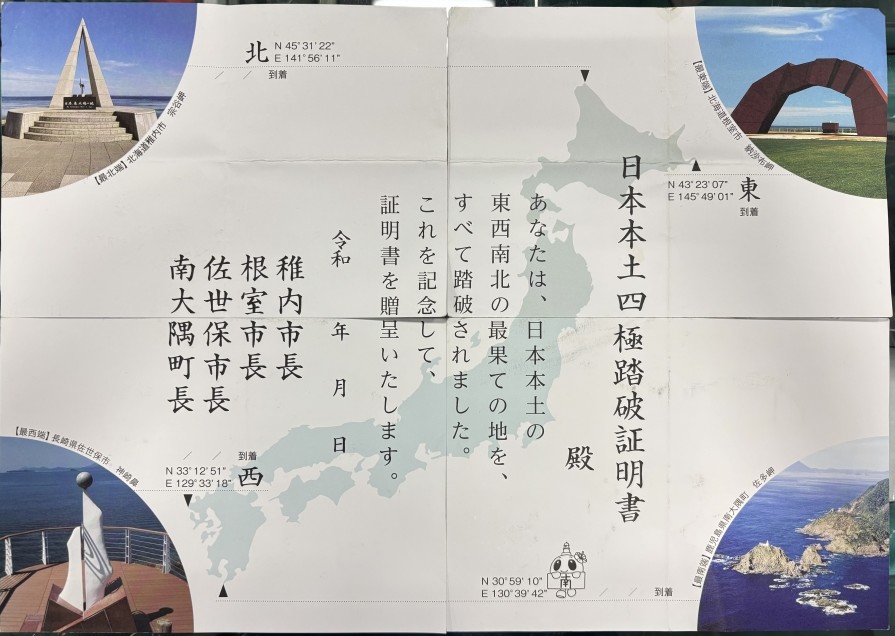 北
N 45°31'22"
E 141°56'11"
/ / 到着
【最北端】北海道稚内市 宗谷岬
【最東端】北海道根室市 納沙布岬
N 43°23'07"
E 145°49'01"
東
到着
日本本土四極踏破証明書
殿
あなたは、日本本土の
東西南北の最果ての地を、
すべて踏破されました。
これを記念して、
証明書を贈呈いたします。
令和 年 月 日
稚内市長
根室市長
佐世保市長
南大隅町長
【最西端】長崎県佐世保市 神崎鼻
/ / 到着
N 33°12'51"
E 129°33'18"
西
南
N 30°59'10"
E 130°39'42"
/ / 到着
【最南端】鹿児島県南大隅町 佐多岬